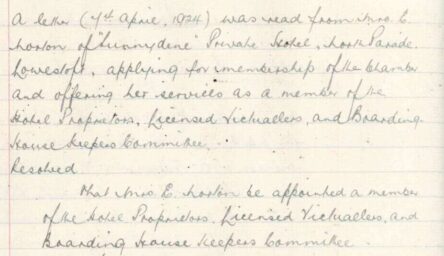 A letter (7th April, 1924) was read from Mrs. E.
Norton of "Sunnydene" Private Hotel, North Parade,
Lowestoft, applying for membership of the Chamber
and offering her services as a member of the
Hotel Proprietors, Licensed Victuallers, and Boarding
House Keepers Committee.
Resolved
That Mrs. E. Norton be appointed a member
of the Hotel Proprietors, Licensed Victuallers, and
Boarding House Keepers Committee.